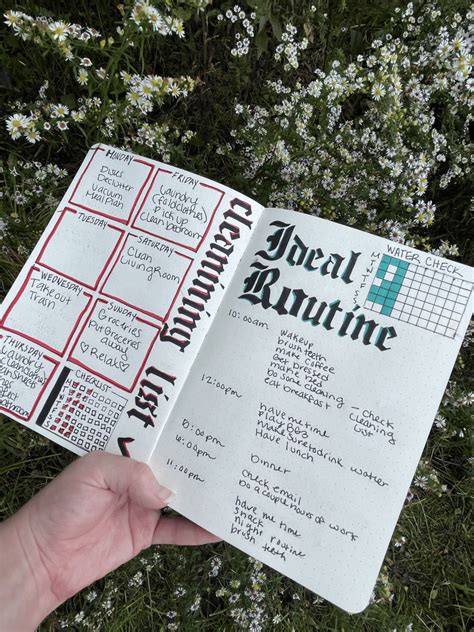 Monday
Dises
Declutter
Vacuum
Meal Plan
Tuesday
Wednesday
Takeout
Trash
Thursday
Laundry
Friday
Laundry
(Fold clothes)
Pick up
Clean bedroom
Saturday
Clean
Living Room
Sunday
Groceries
Put Groceries
away
♡ Relax ♡
Checklist
M T W T F S S
cleanning list
Ideal
Routine
WATER CHECK
M T W T F S S
10:00am
wakeup
brush teeth
make coffee
Get dressed
make bed
Do some cleaning — check
cleaning
List
eat breakfast
12:00pm
have me time
Play
make sure to drink watter
Have lunch
5:00pm
6:00pm
Dinner
check email
Do a couple hours of work
11:00pm
have me time
snack
night routine
brush teeth